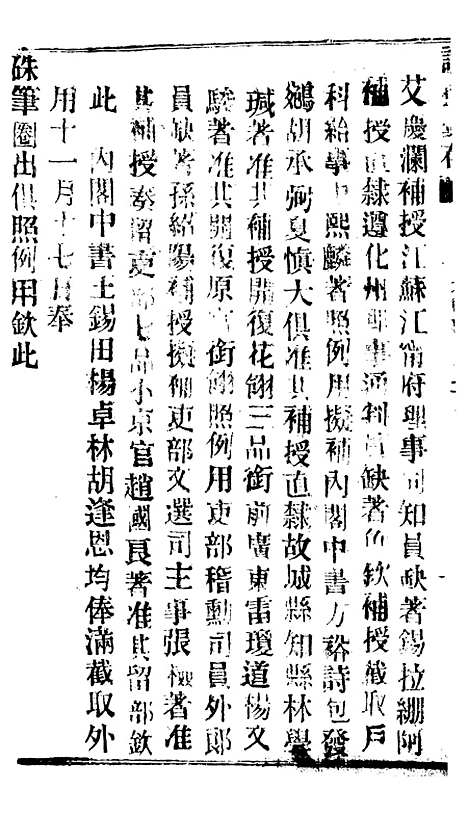 艾慶瀾補授江蘇江甯府理事同知員缺著錫拉綳阿
補授直隸遵化州理事通判員缺著魚欽補授截取戶
科給事中熙麟著照例用擬補內閣中書方裕詩包發
鵷胡承弼夏慎大俱准其補授直隸故城縣知縣林學
瑊著准其補授開復花翎三品銜前廣東雷瓊道楊文
駿著准其開復原官銜翎照例用吏部稽勳司員外郎
員缺著孫紹陽補授擬補吏部文選司主事張 著准
其補授奏留吏部七品小京官趙國良著准其留部欽
此 內閣中書王錫田楊卓林胡逢恩均俸滿截取外
用十一月十七日奉
硃筆圈出俱照例用欽此